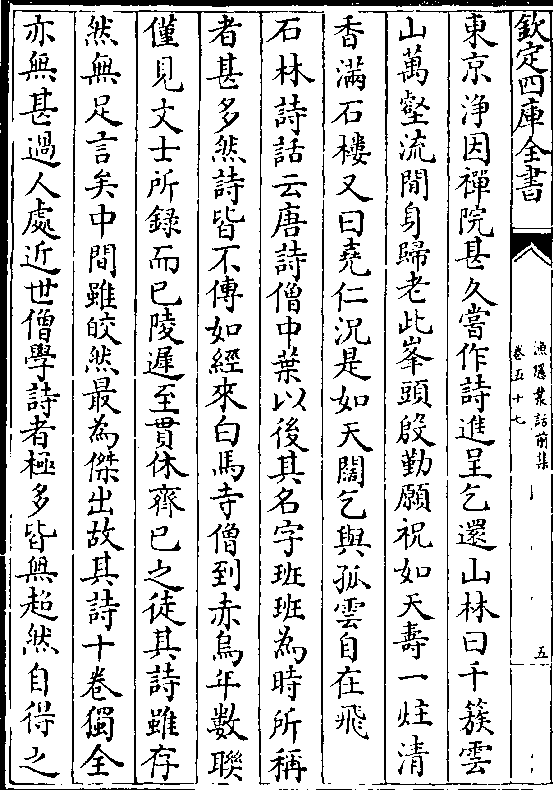 欽定四庫全書
漁隱叢話前集
卷五十七
五
東京淨因禪院甚久嘗作詩進呈乞還山林曰千簇雲
山萬壑流閒身歸老此峯頭殷勤願祝如天壽一炷清
香滿石樓又曰堯仁況是如天闊乞與孤雲自在飛
石林詩話云唐詩僧中葉以後其名字班班為時所稱
者甚多然詩皆不傳如經來白馬寺僧到赤烏年數聯
僅見文士所録而已陵遲至貫休齊已之徒其詩雖存
然無足言矣中間雖皎然最為傑出故其詩十卷獨全
亦無甚過人處近世僧學詩者極多皆無超然自得之